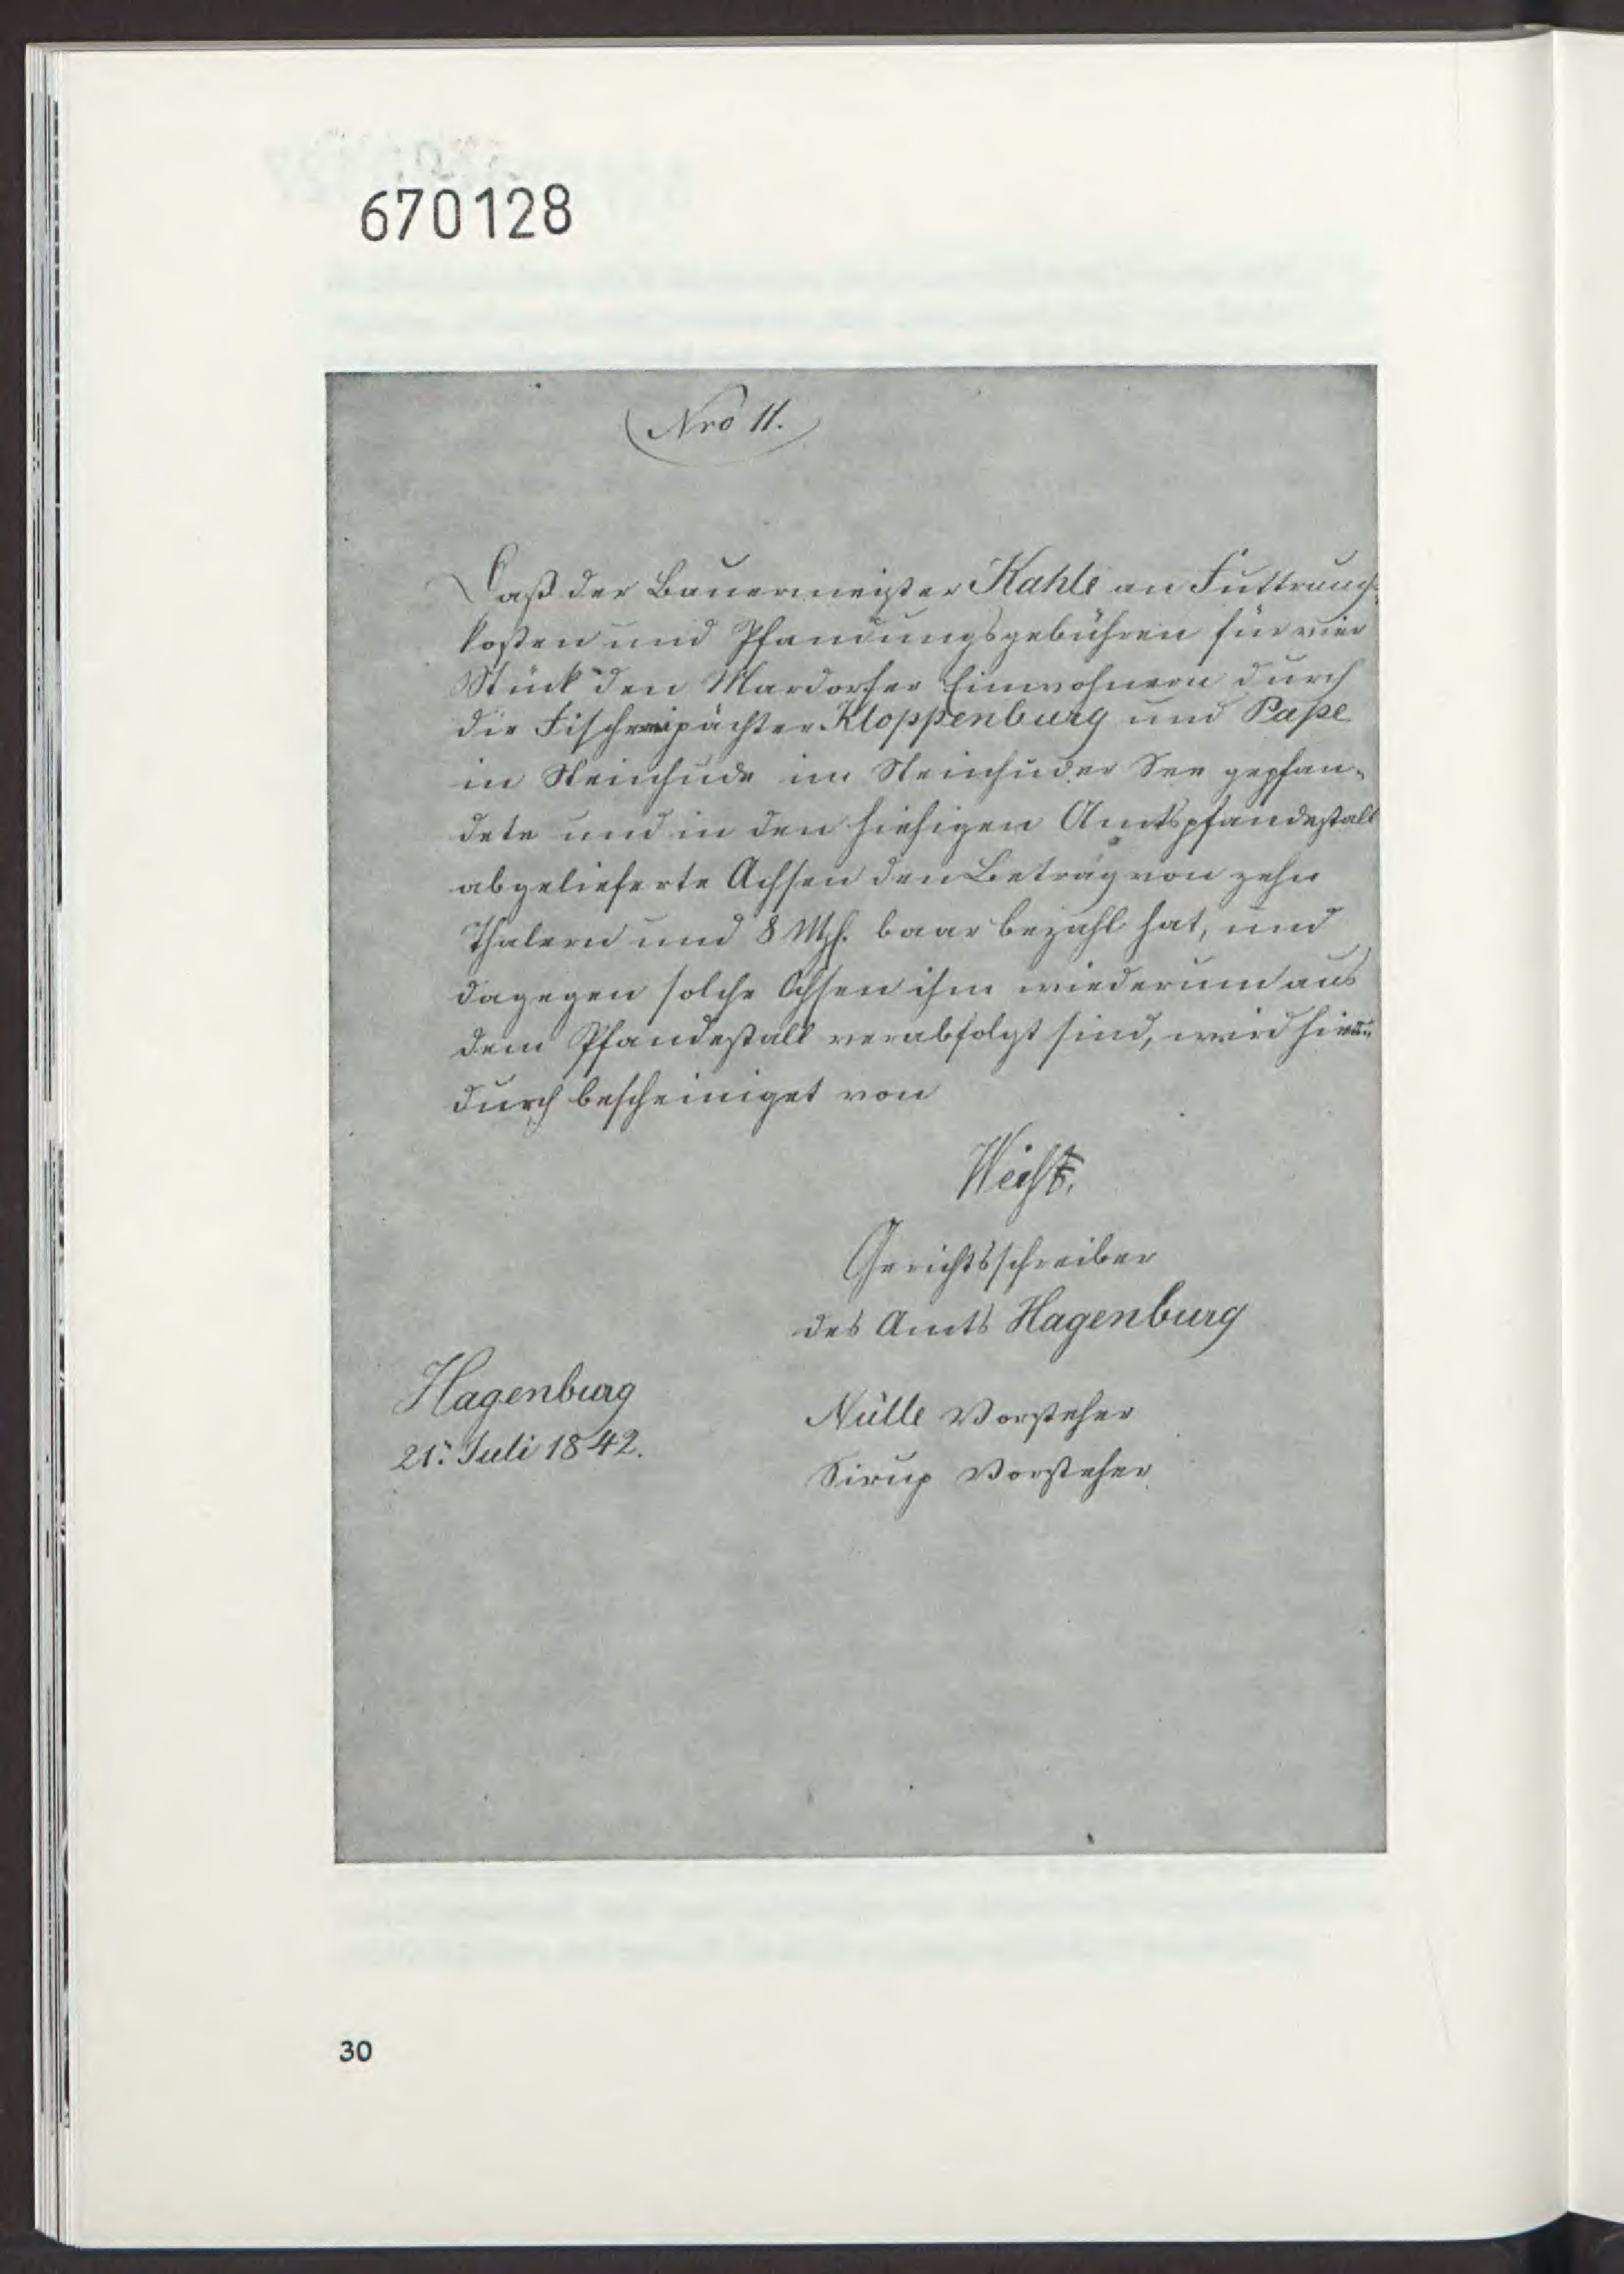 670128
Nro 11.
Daß der Bauermeister Kahle an Futtrungs-
kosten und Pfandungsgebühren für vier
Stück den Mardorfer Einwohnern durch
die Fischereipächter Kloppenburg und Pape
in Steinhude im Steinhuder See gepfan-
dete und in den hiesigen Amtspfandestall
abgelieferte Ochsen den Betrag von zehn
Thalern und 8 Mgf. baar bezahl hat, und
dagegen solche Ochsen ihm wiederum aus
dem Pfandestall verabfolgt sind, wird hier-
durch bescheiniget von
Gerichtsschreiber
des Amts Hagenburg
Hagenburg
21. Juli 1842.
Nülle Vorsteher
Sirup Vorsteher
30